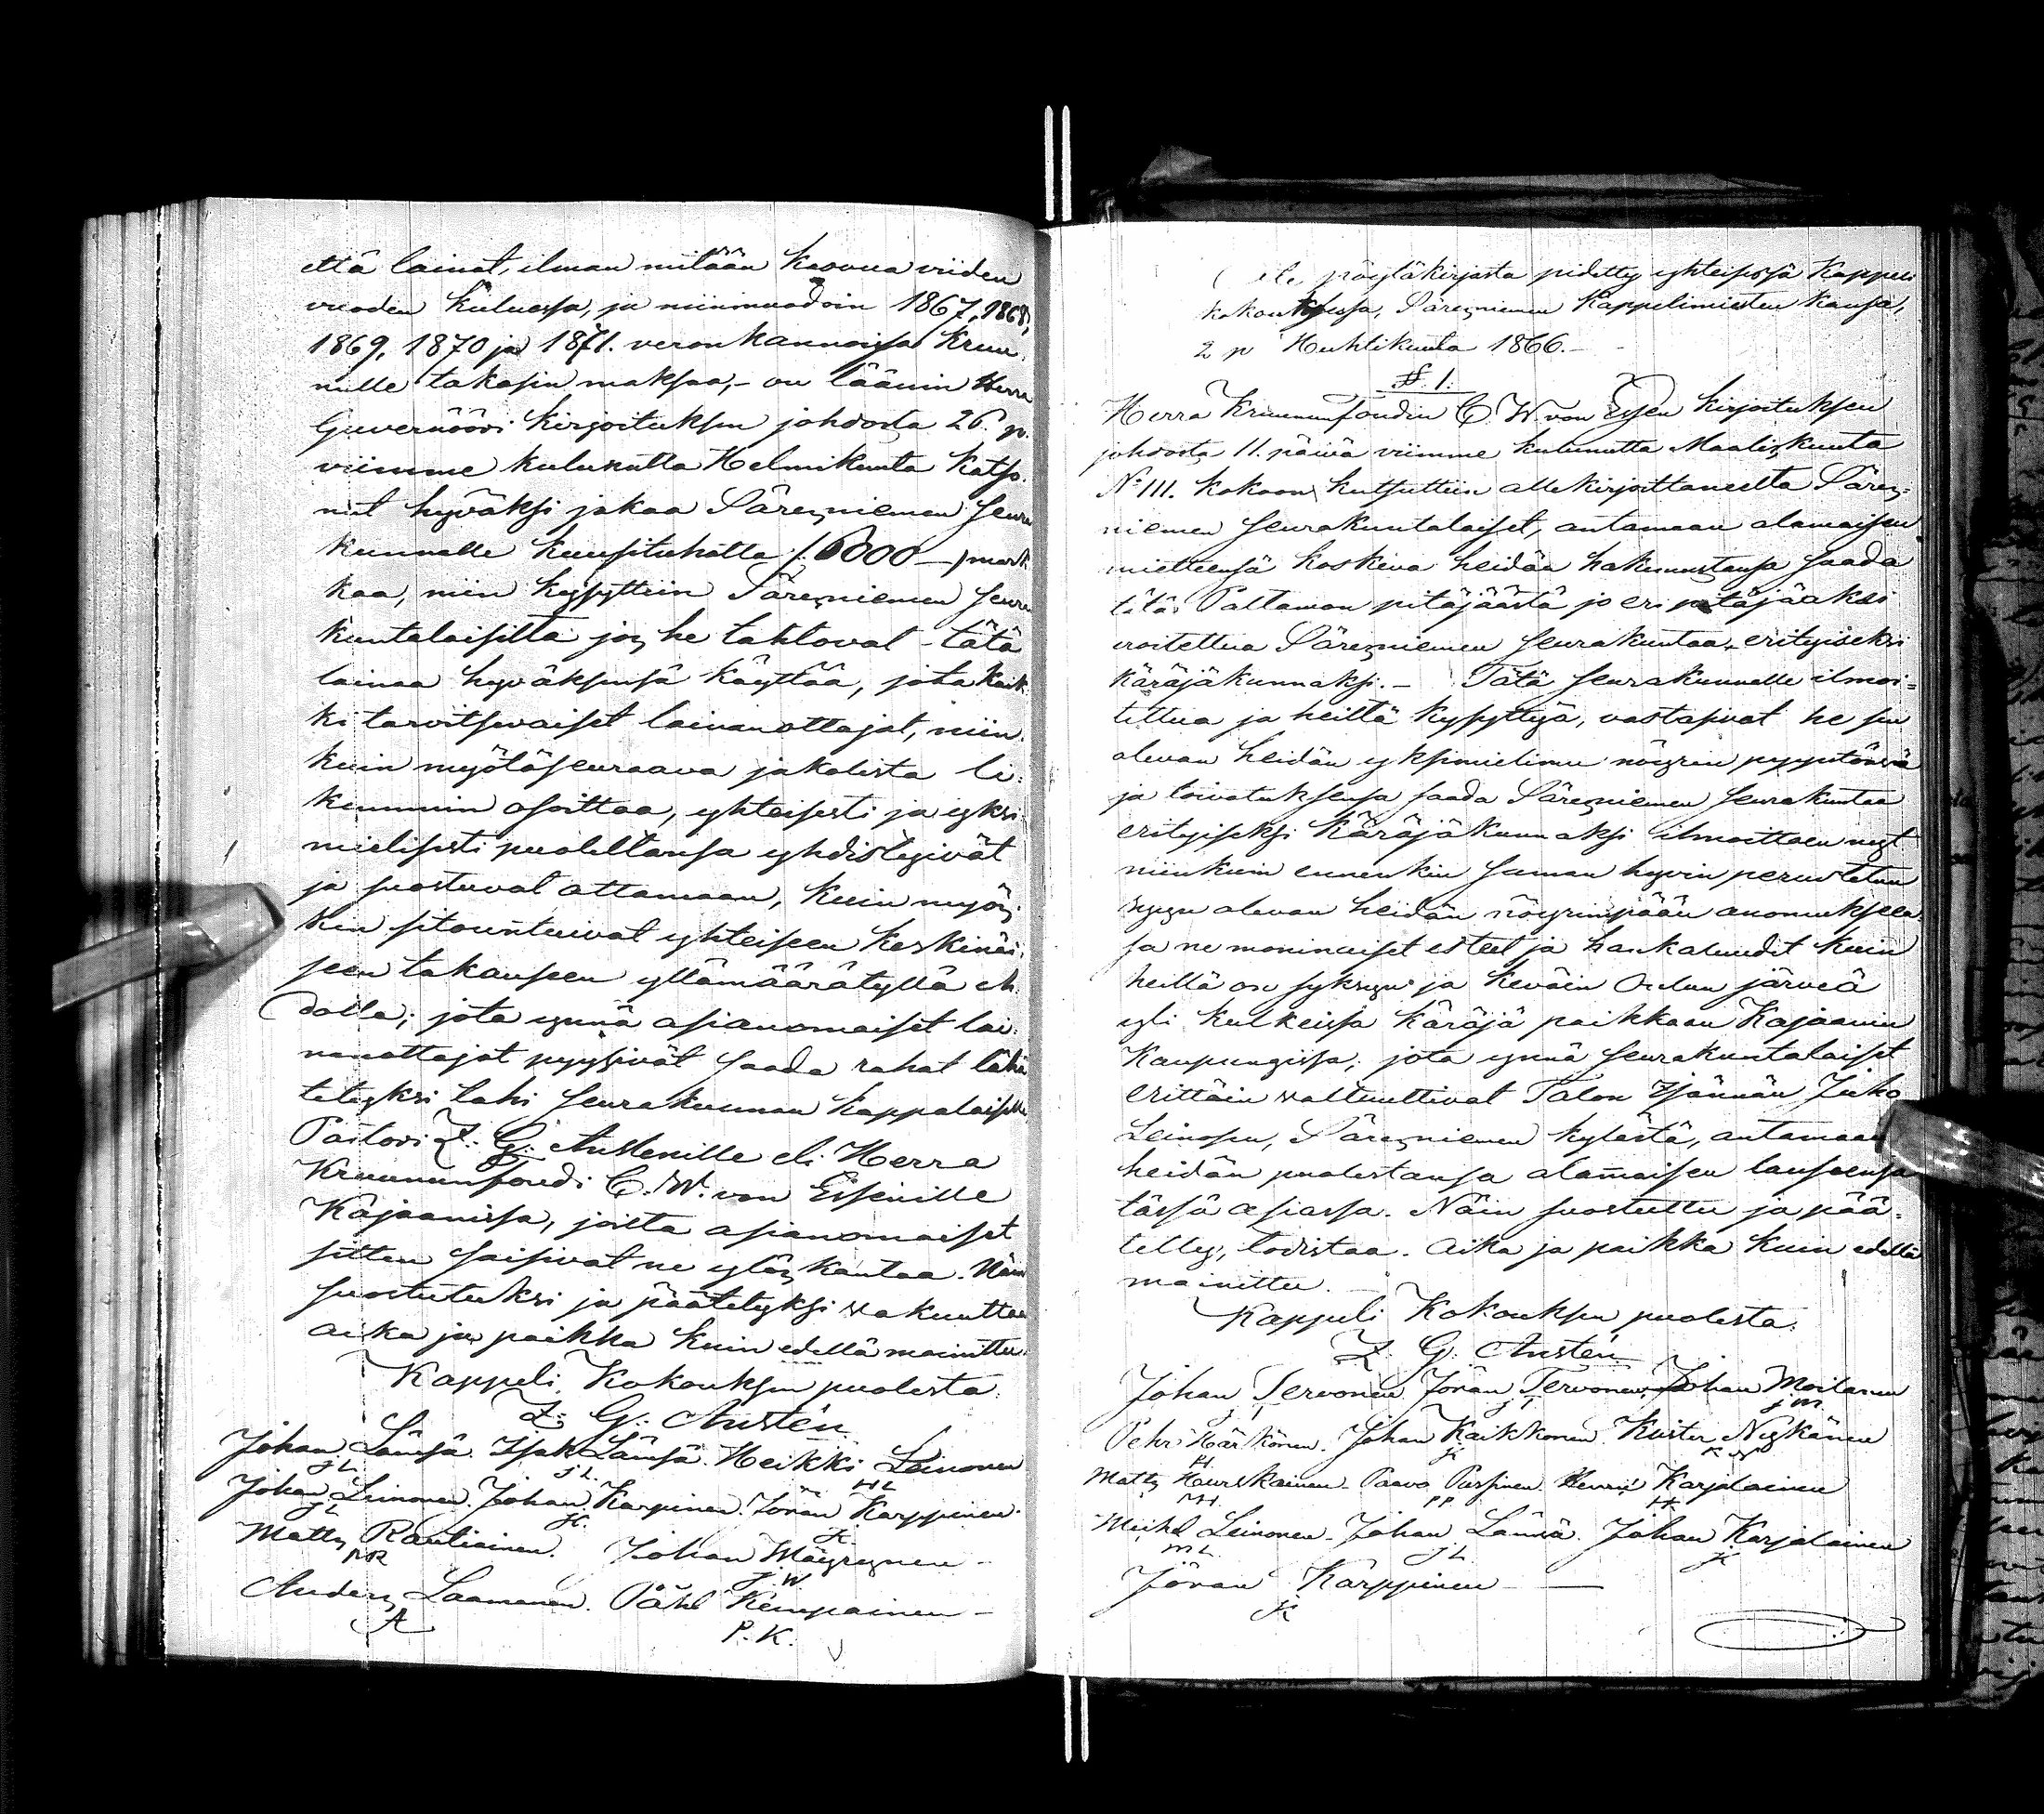 että lainat, ilman mitään kasvua viiden
vuoden kuluessa, ja niinmuodoin 1867, 1868,
1869, 1870 ja 1871. veronkannoissa Kruu-
nulle takasin maksaa,- on läänin Herra
Guvernööri kirjoituksen johdosta 26. p.
viimme kulunutta Helmikuuta katso-
nut hyväksi jakaa Säresniemen seura
kunnalle kuusituhatta (6000 —) mark
kaa, niin kysyttiin Säresniemen seura
kuntalaisilta jos he tahtovat tätä
lainaa hyväksensä käyttää, jota kaik
ki tarvitsevaiset lainanottajat, niin
kuin myötäseuraava jakolista li-
kemmin osoittaa, yhteisesti ja yksi
mielisesti puoleltansa yhdistyivät
ja suostuvat ottamaan, kuin myös
kin sitounteivat yhteiseen keskinäi-
seen takauseen yllämäärätyllä eh-
dolla; jota ynnä asianomaiset lai-
nanottajat pyysivät saada rahat lähä
tetyksi tahi seurakunnan kappalaiselle,
Pastori Z. G. Austenille eli Herra
Kruununfoudi C. W. von Essenille
Kajaanissa, joilta asianomaiset
sitten saisivat ne ylöskantaa. Näin
suostutuksi ja päätetyksi vakuuttaa
aika ja paikka kuin edellä mainittu.
Kappeli Kokouksen puolesta:
Z. G. Austén
Johan Lämsä. Isak Lämsä. Heikki Leinonen
JL IL HL
Johan Leinonen. Johan Karpinen. Jöran Karppinen.
JL JK JK
Matts Rautiainen. Johan Mäyrynen -
MR J.W
Anders Laamanen. Påhl Kemppainen -
A P. K.
pöytäkirjasta pidetty yhteisessä Kappeli
kokouksessa, Säresniemen Kappelimiesten kansa,
2 p Huhtikuuta 1866. —
§. 1.
Herra Kruununfoudin C. W. von Essen kirjoituksen
johdosta 11. päivä viimme kulunutta Maaliskuuta
No 111. kokoon kutsuttiin allekirjoittaneelta Säres-
niemen seurakuntalaiset, antamaan alamaisen
mielteensä koskeva heidän hakemustansa saada
tätä Paltamon pitäjäästä jo eri pitäjääksi
eroitettua Säresniemen seurakuntaa erityiseksi
käräjäkunnaksi. — Tätä seurakunnalle ilmoi-
tettua ja heiltä kysyttyä, vastasivat he sen
olevan heidän yksimielinen nöyrin pyyntönsä
ja toivotuksensa saada Säresniemen seurakuntaa
erityiseksi Käräjäkunnaksi ilmoittaen nyt
niinkuin ennenkin saman hyvin perustetun
syyn olevan heidän nöyrimpään anomukseen
sa ne moninaiset esteet ja hankaluudet kuin
heillä on syksyin ja keväin Oulun järveä
yli kulkeissa käräjä paikkaan Kajaanin
Kaupungissa; jota ynnä seurakuntalaiset
erittäin valtuuttivat Talon Isännän Juho
Leinosen, Säresniemen kylästä, antamaan
heidän puolestansa alamaisen lausoensa
tässä asiassa. Näin suostuttu ja pää-
tetty, todistaa. Aika ja paikka kuin edellä
mainittu.
Kappeli Kokouksen puolesta:
Z. G. Austén
Johan Tervonen. Jöran Tervonen. Johan Moilanen
J T J T J M
Pehr Härkönen. Johan Kaikkonen. Kuster Niskanen
H JK K N
Matts Heurskainen. Paavo Pussinen. Henrik Karjalainen
MH PP HK
Michel Leinonen. Johan Lämsä. Johan Karjalainen
ML JL JK
Jöran Kärppinen —
JK